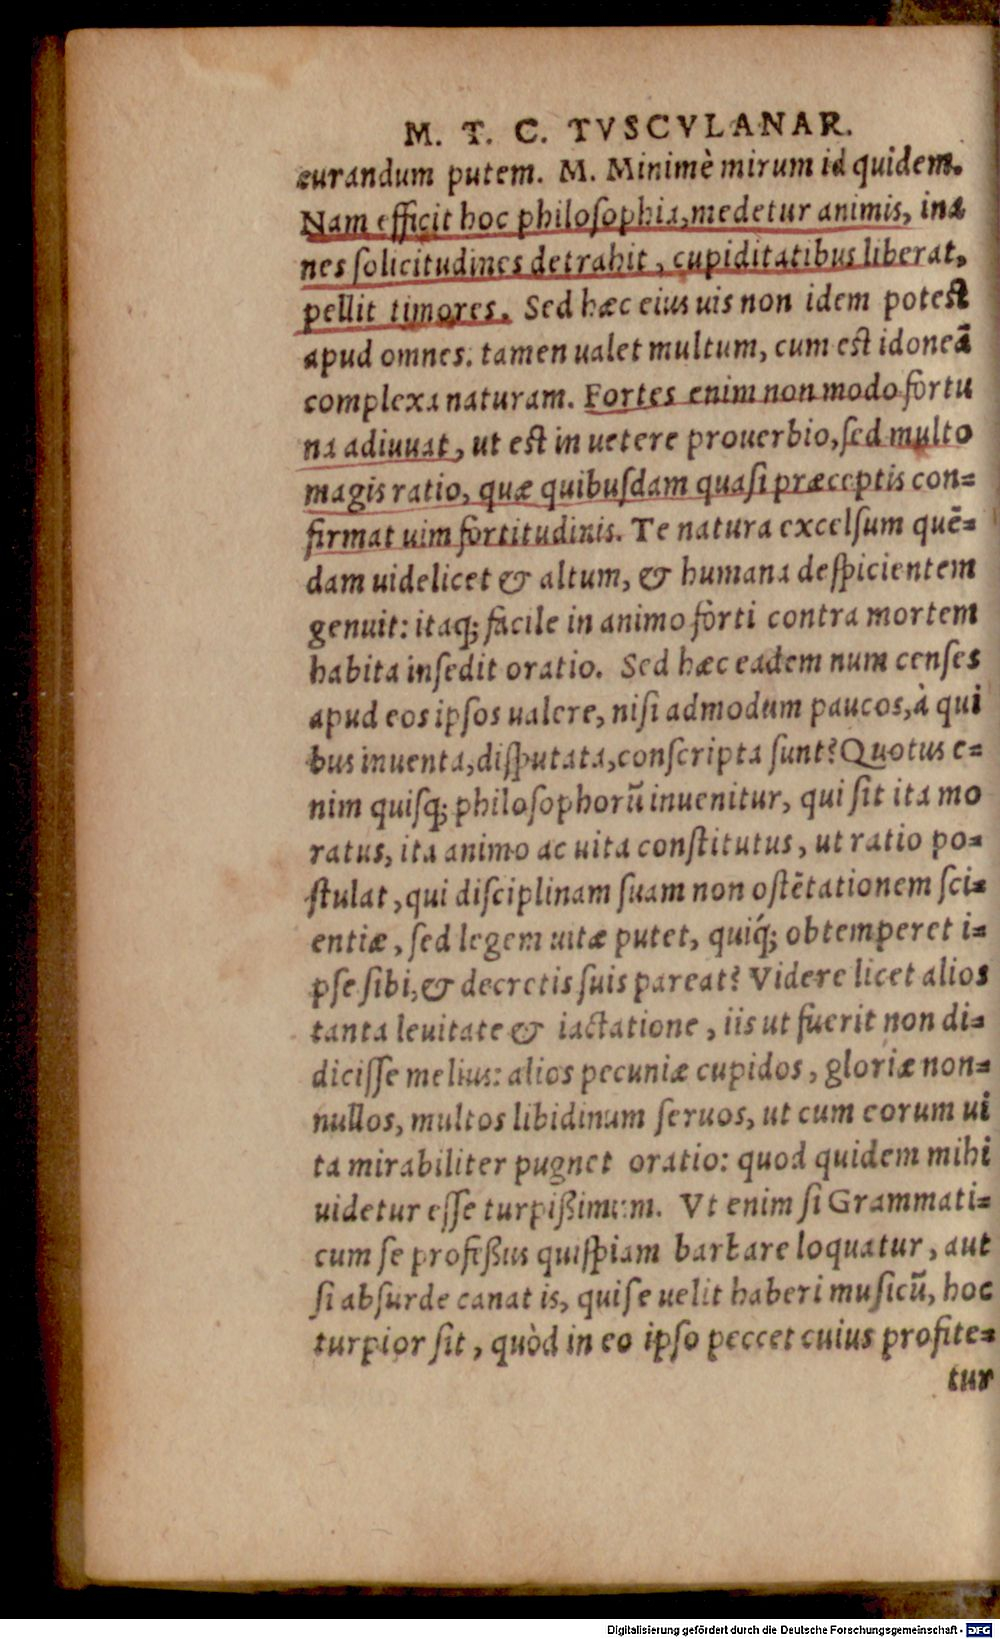 M. T. C. TVSCVLANAR.
curandum putem. M. Minimè mirum id quidem.
Nam efficit hoc philoſophia, medetur animis, ina
nes ſolicitudines detrahit, cupiditatibus liberat,
pellit timores. Sed hæc eius uis non idem poteſt
apud omnes. tamen ualet multum, cum eſt idoneã
complexa naturam. Fortes enim non modo fortu
na adiuuat, ut eſt in uetere prouerbio, ſed multo
magis ratio, quæ quibuſdam quaſi præceptis con=
firmat uim fortitudinis. Te natura excelſum quē=
dam uidelicet & altum, & humana deſpicientem
genuit: itaq; facile in animo forti contra mortem
habita inſedit oratio. Sed hæc eadem num cenſes
apud eos ipſos ualere, niſi admodum paucos, à qui
bus inuenta, diſputata, conſcripta ſunt? Quotus e=
nim quiſq; philoſophorũ inuenitur, qui ſit ita mo
ratus, ita animo ac uita conſtitutus, ut ratio po=
ſtulat, qui diſciplinam ſuam non oſtētationem ſci=
entiæ, ſed legem uitæ putet, quiq́; obtemperet i=
pſe ſibi, & decretis ſuis pareat? Videre licet alios
tanta leuitate & iactatione, iis ut fuerit non di=
diciſſe melius: alios pecuniæ cupidos, gloriæ non=
nullos, multos libidinum ſeruos, ut cum eorum ui
ta mirabiliter pugnet oratio: quod quidem mihi
uidetur eſſe turpißimum. Vt enim ſi Grammati=
cum ſe profeßus quiſpiam barbare loquatur, aut
ſi abſurde canat is, qui ſe uelit haberi muſicũ, hoc
turpior ſit, quòd in eo ipſo peccet cuius profite=
tur
Digitalisierung gefördert durch die Deutsche Forschungsgemeinschaft - DFG